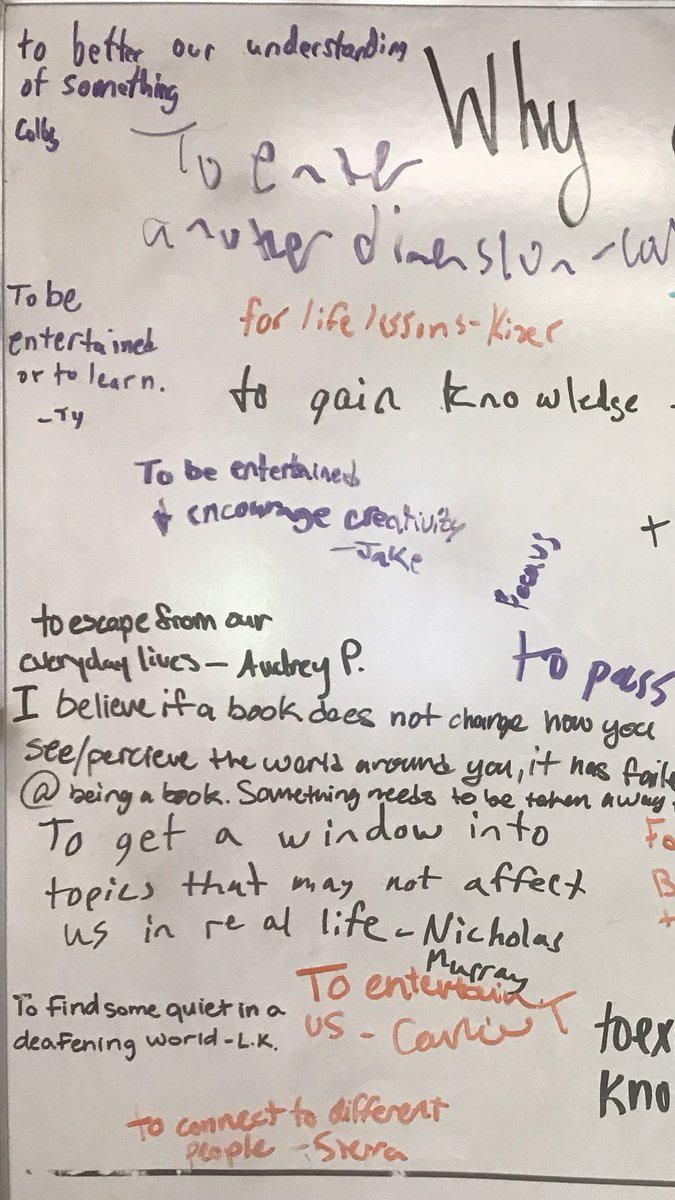 to better our understanding
of something
Colby
Why
To enter
another dimension -
To be
entertained
or to learn.
-Ty
for life lessons - Kizer
to gain knowledge -
To be entertained
+ encourage creativity
- Jake
to escape from our
everyday lives - Audrey P.
to pass
I believe if a book does not change how you
see/percieve the world around you, it has
@ being a book. Something needs to be taken away
To get a window into
topics that may not affect
us in real life - Nicholas
Murray
To find some quiet in a
deafening world - L.K.
To entertain
us -
To connect to different
people - Sierra